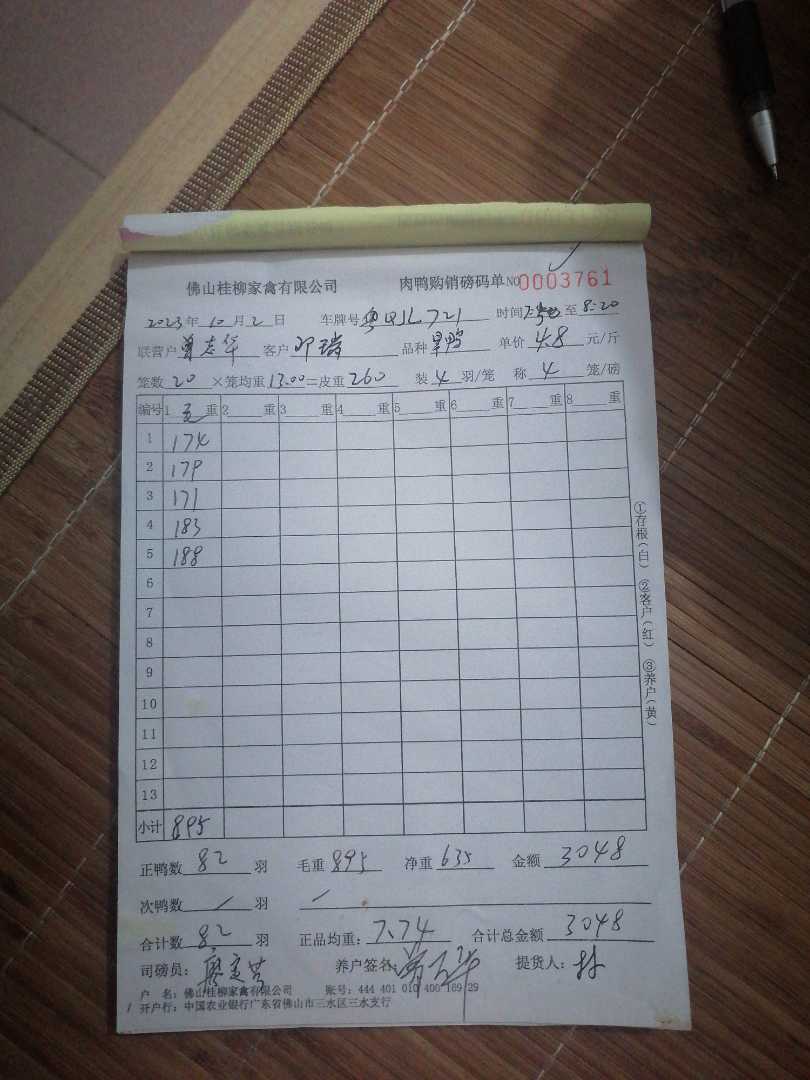 佛山桂柳家禽有限公司 肉鸭购销磅码单 NO 0003761
2023年 10月 2日 车牌号 粤QJL721 时间 至 8:20
联营户 曾志华 客户 邓瑞 品种 旱鸭 单价 4.8 元/斤
笼数 20 ×笼均重 13.00 =皮重 260 装 4 羽/笼 称 4 笼/磅
编号 1 毛 重 2 重 3 重 4 重 5 重 6 重 7 重 8 重
1 174
2 179
3 171
4 183
5 188
6
7
8
9
10
11
12
13
小计 895
①存根(白) ②客户(红) ③养户(黄)
正鸭数 82 羽 毛重 895 净重 635 金额 3048
次鸭数 / 羽 /
合计数 82 羽 正品均重: 7.74 合计总金额 3048
司磅员: 廖 养户签名: 曾志华 提货人: 林
户 名: 佛山桂柳家禽有限公司 账号: 444 401 010 400 169 29
开户行: 中国农业银行广东省佛山市三水区三水支行